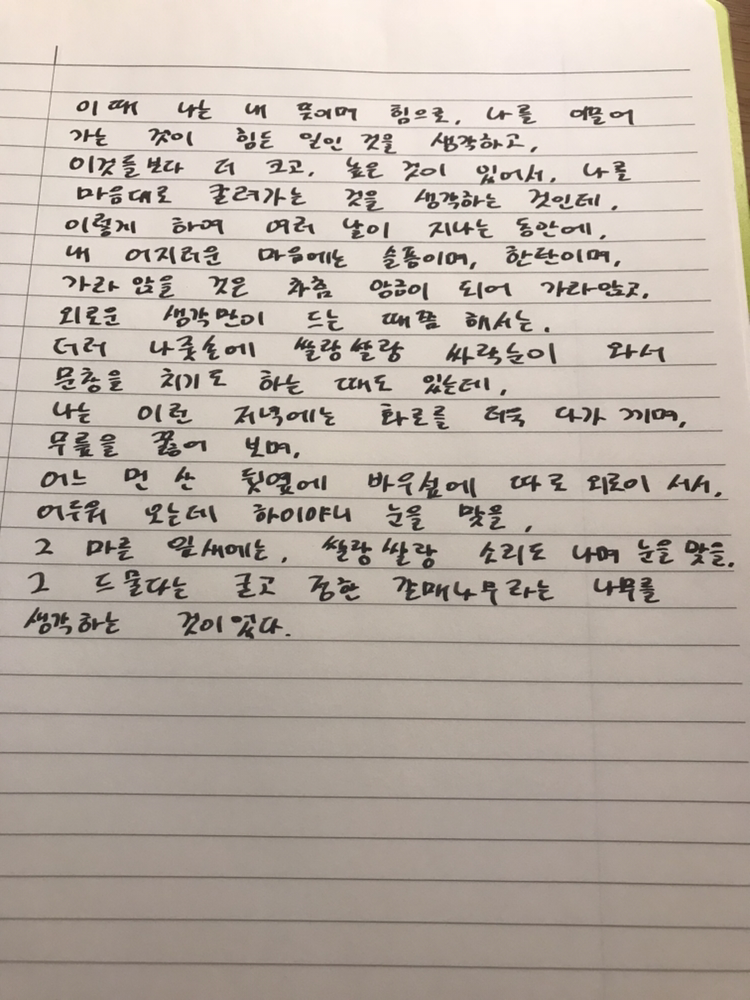 이 때 나는 내 뜻이며 힘으로, 나를 이끌어
가는 것이 힘든 일인 것을 생각하고,
이것들보다 더 크고, 높은 것이 있어서, 나를
마음대로 굴려가는 것을 생각하는 것인데,
이렇게 하여 여러 날이 지나는 동안에,
내 어지러운 마음에는 슬픔이며, 한탄이며,
가라 앉을 것은 차츰 앙금이 되어 가라앉고,
외로운 생각만이 드는 때쯤 해서는,
더러 나줏손에 쌀랑쌀랑 싸락눈이 와서
문창을 치기도 하는 때도 있는데,
나는 이런 저녁에는 화로를 더욱 다가 끼며,
무릎을 꿇어 보며,
어느 먼 산 뒷옆에 바우섶에 따로 외로이 서서,
어두워 오는데 하이야니 눈을 맞을,
그 마른 잎새에는, 쌀랑쌀랑 소리도 나며 눈을 맞을,
그 드물다는 굳고 정한 갈매나무라는 나무를
생각하는 것이었다.